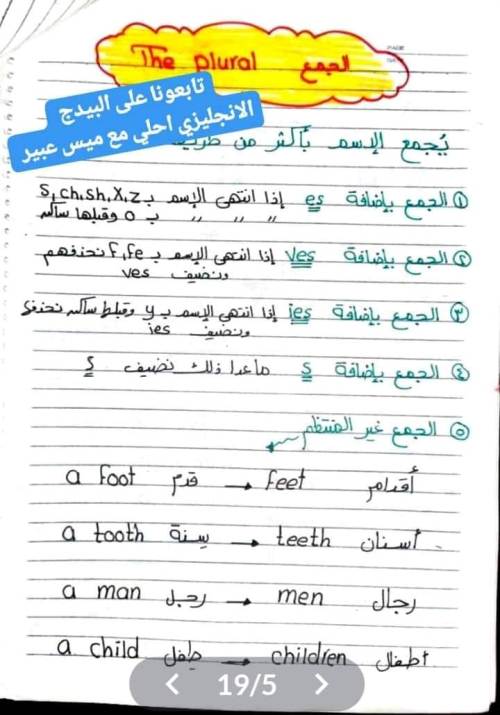 The plural الجمع
تابعونا على البيدج
الانجليزي احلي مع ميس عبير
يُجمع الإسم بأكثر من
① الجمع بإضافة es إذا انتهى الإسم بـ s, ch, sh, x, z
" " " بـ o وقبلها ساكن
② الجمع بإضافة ves إذا انتهى الإسم بـ f, fe نحذفهم
ونضيف ves
③ الجمع بإضافة ies إذا انتهى الإسم بـ y وقبلها ساكن نحذف
ونضيف ies
④ الجمع بإضافة s ماعدا ذلك نضيف s
⑤ الجمع غير المنتظم
a foot قدم → feet أقدام
a tooth سِنة → teeth أسنان
a man رجل → men رجال
a child طِفل → children أطفال
19/5